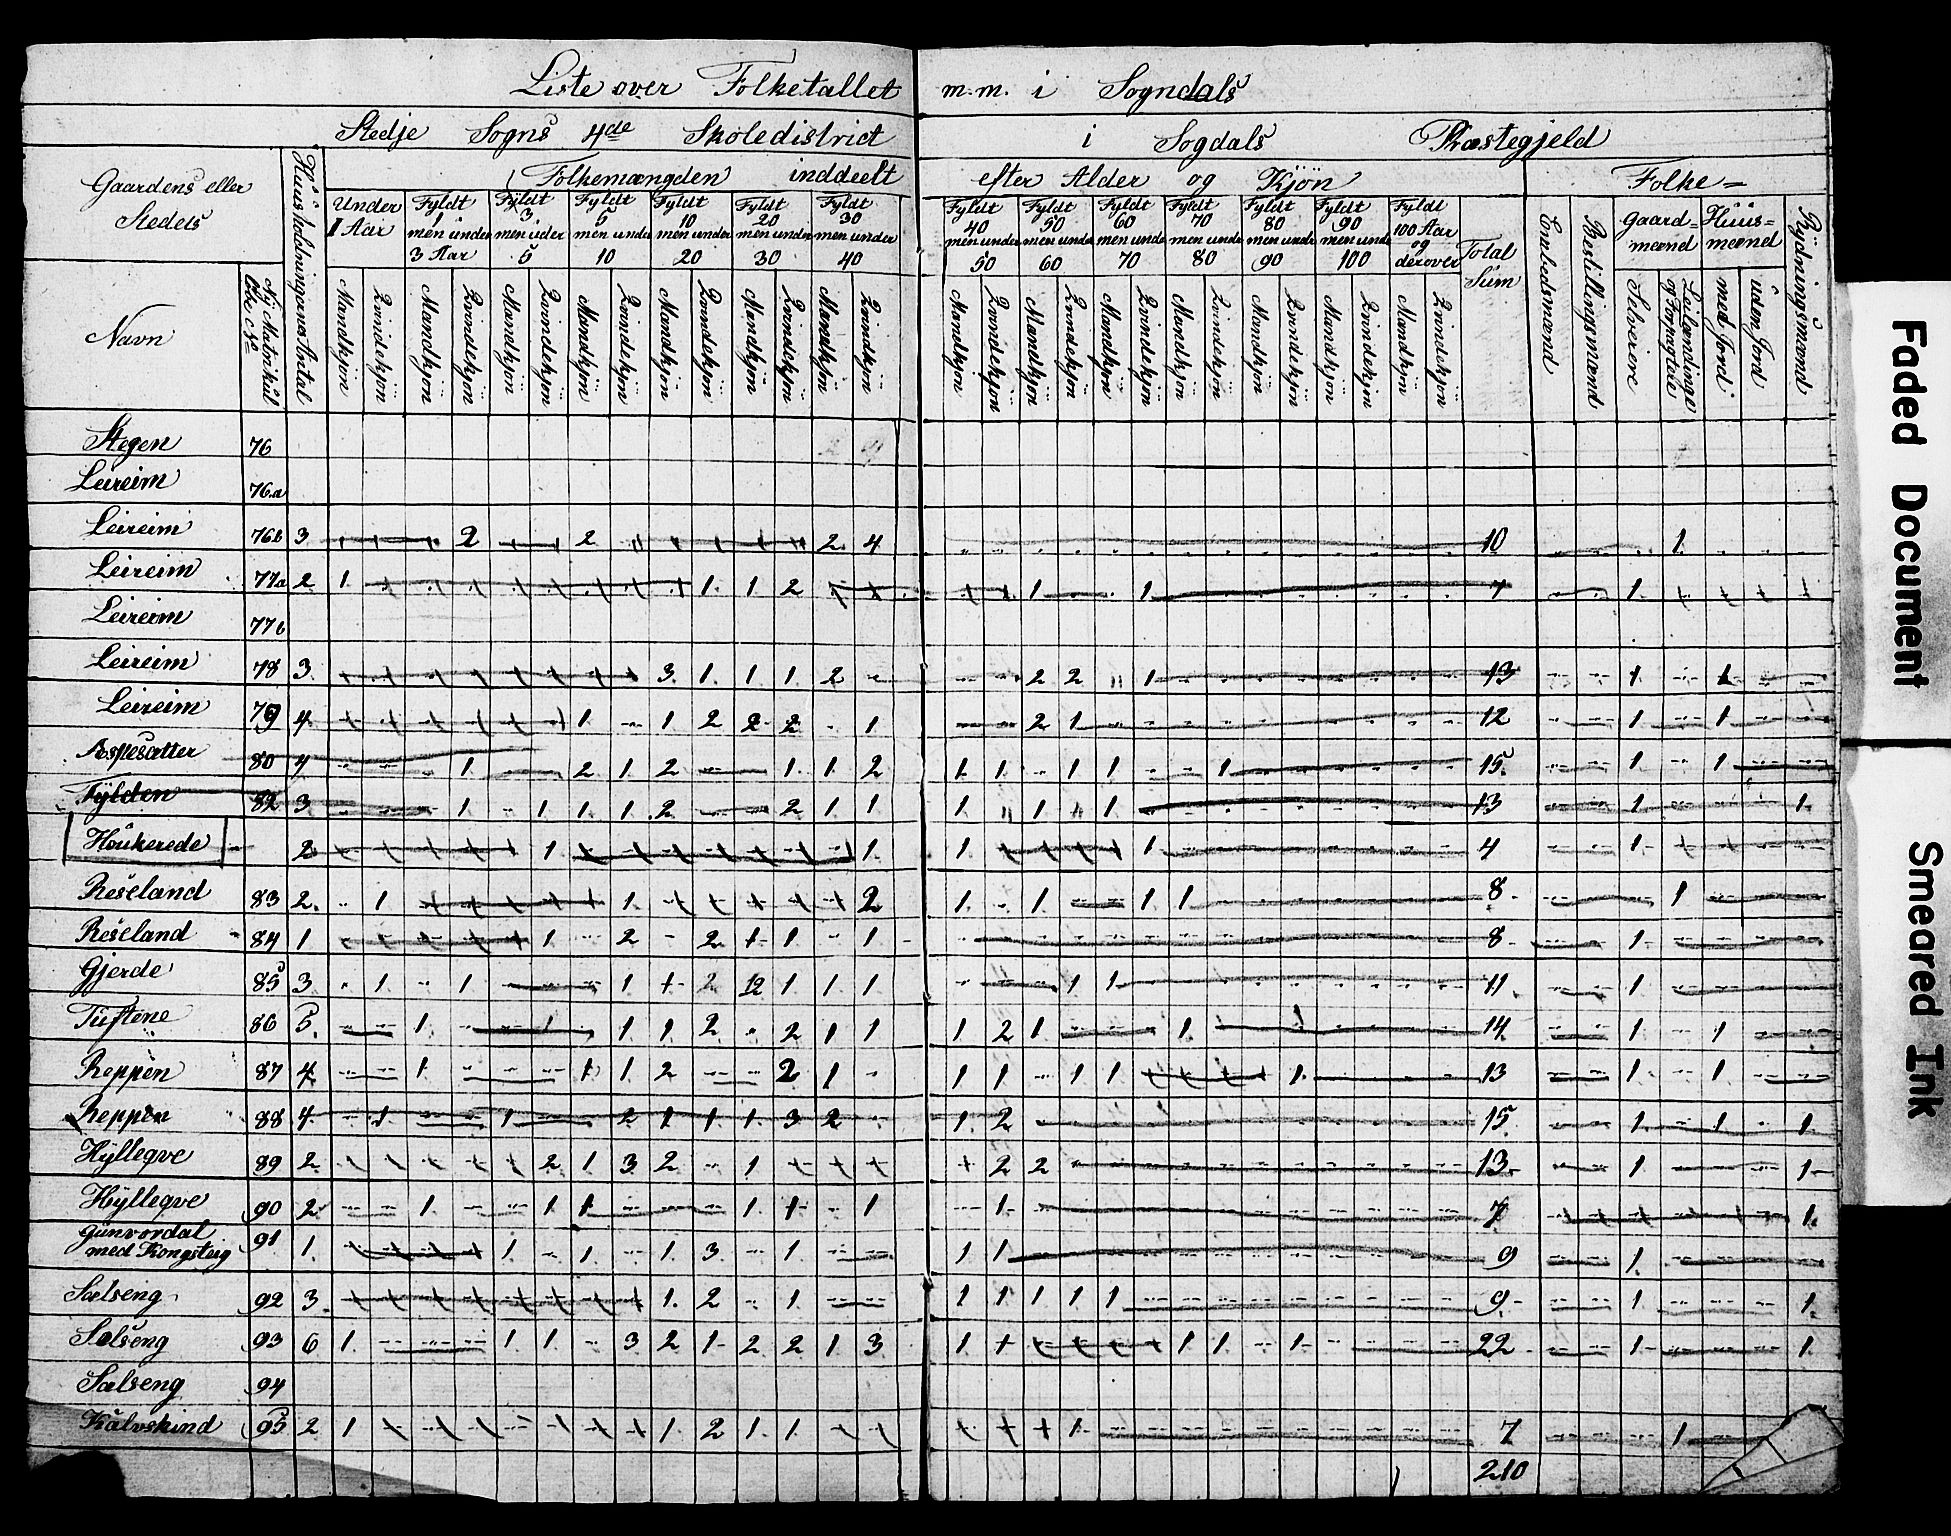 Liste over Folketallet m.m. i Sogndals
Stedje Sogns 4de Skoledistrict i Sogdals Præstegjeld
Gaardens eller Steders
Navn
Ny Matrikül
Huusholdningernes Antal
Folkemængden inddeelt efter Alder og Kjön
Folke=
Under 1 Aar
Fyldt 1 men under 3 Aar
Fyldt 3 men uder 5
Fyldt 5 men under 10
Fyldt 10 men under 20
Fyldt 20 men under 30
Fyldt 30 men under 40
Fyldt 40 men under 50
Fyldt 50 men under 60
Fyldt 60 men under 70
Fyldt 70 men under 80
Fyldt 80 men under 90
Fyldt 90 men under 100
Fyldt 100 Aar og derover
Total Sum
Mandkjön Qvindekjön
Embedsmænd
Bestillingsmænd
Gaard=mænd
Selveiere
Leilændinge og Forpagtere
Huus=mænd
med Jord
uden Jord
Rydningsmænd
Stegen 76
Leireim 76a
Leireim 76b 3 2 2 2 4 10 1
Leireim 77a 2 1 1 1 2 1 1 7 1
Leireim 77b
Leireim 78 3 3 1 1 1 2 2 2 1 13 1 1
Leireim 79 4 1 1 2 2 2 1 2 1 12 1 1
Aspesætter 80 4 1 2 1 2 1 1 2 1 1 1 1 1 15 1 1
Fylden 82 3 1 1 1 1 2 2 1 1 1 1 1 13 1 1
Houkerede 2 1 1 1 1 4 1
Reseland 83 2 1 1 2 1 1 1 1 8 1
Reseland 84 1 1 2 2 1 1 1 8 1
Gjerde 85 3 1 1 1 1 2 12 1 1 1 1 1 11 1
Tuftene 86 5 1 1 1 1 2 2 1 1 1 2 1 1 1 14 1 1
Reppen 87 4 1 1 1 2 2 1 1 1 1 1 1 13 1 1
Reppen 88 4 1 1 2 1 1 1 3 2 1 2 15 1 1 1
Hyllegve 89 2 2 1 3 2 1 2 2 13 1 1
Hyllegve 90 2 1 1 1 1 1 1 1 7 1
Gunvordal
med Kongsteig 91 1 1 1 1 3 1 1 1 9 1
Sælseng 92 3 1 2 1 1 1 1 1 1 9 1 1
Sælseng 93 6 1 1 1 3 2 1 2 2 1 3 1 1 1 1 22 1 1
Sælseng 94
Kalvskind 95 2 1 1 2 1 1 1 7 1
210
Faded Document
Smeared Ink